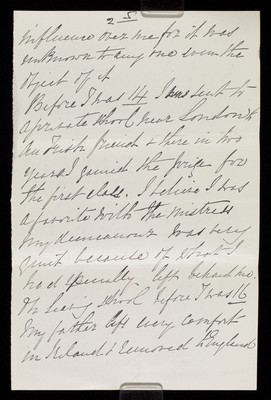 2
influence over me for it was
unknown to any one even the
object of it
Before I was 14 I was sent to
a private school near London &
an Irish friend & there in two
years I gained the prize for
the first class. I believe I was
a favorite with the mistress
my demeanour was very
quiet because of what I
had especially left behind me.
On leaving school before I was 16
my father left every comfort
in Ireland & removed to England